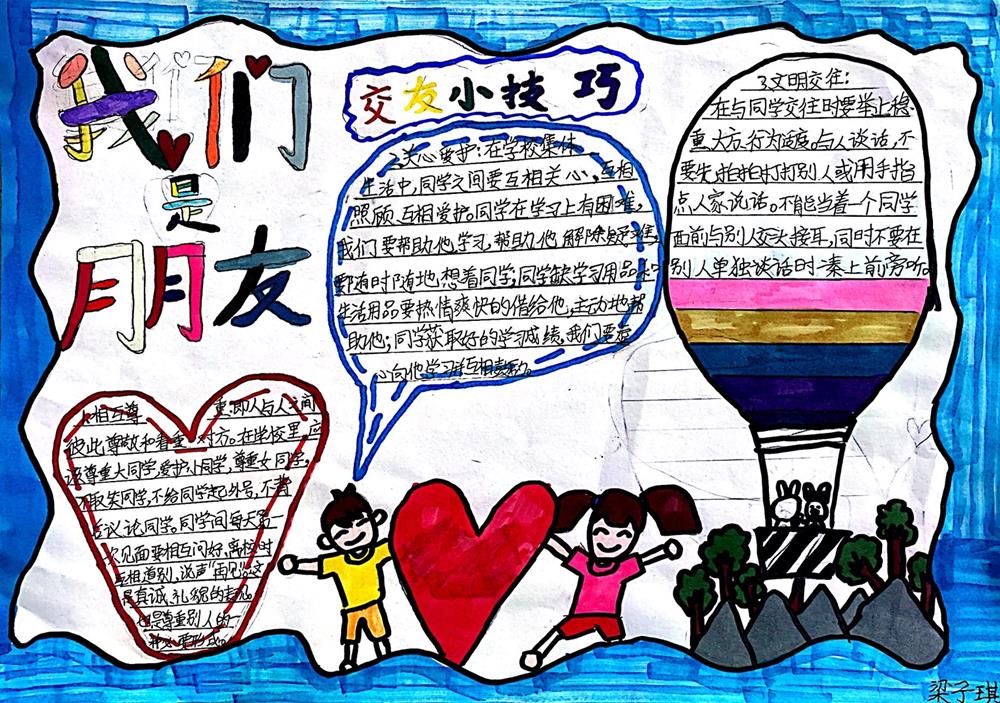 我们
是
朋友
交友小技巧
1.相互尊重:即人与人之间
彼此尊敬和看重对方。在学校里,应
该尊重大同学,爱护小同学,尊重女同学,
不取笑同学,不给同学起外号,不背
后议论同学。同学间每天第
次见面要相互问好,离校时
互相道别,说声“再见”
是真诚、礼貌的表
也是尊重别人的一
要形式。
2.关心爱护:在学校集体
生活中,同学之间要互相关心,互相
照顾、互相爱护。同学在学习上有困难,
我们要帮助他学习,帮助他解除疑难,
要随时随地想着同学;同学缺学习用品和
生活用品要热情爽快的借给他,主动地帮
助他;同学获取好的学习成绩,我们要虚
心向他学习并互相
3.文明交往:
在与同学交往时要举止稳
重、大方、行为适度。与人谈话,不
要先拍拍打打别人或用手指
点人家说话。不能当着一个同学
面前与别人交头接耳,同时不要在
别人单独谈话时凑上前旁听。
梁子琪